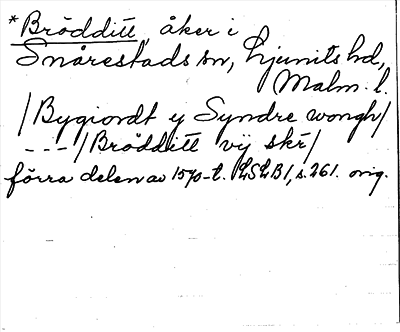 *Brödditt, åker i
Snårestads sn, Ljunits hd,
Malm. l.
/Bygiordt ÿ Syndre wongh/
---/Brödditt vÿ skr/
förra delen av 1570-t. LSLB1, s. 261. orig.